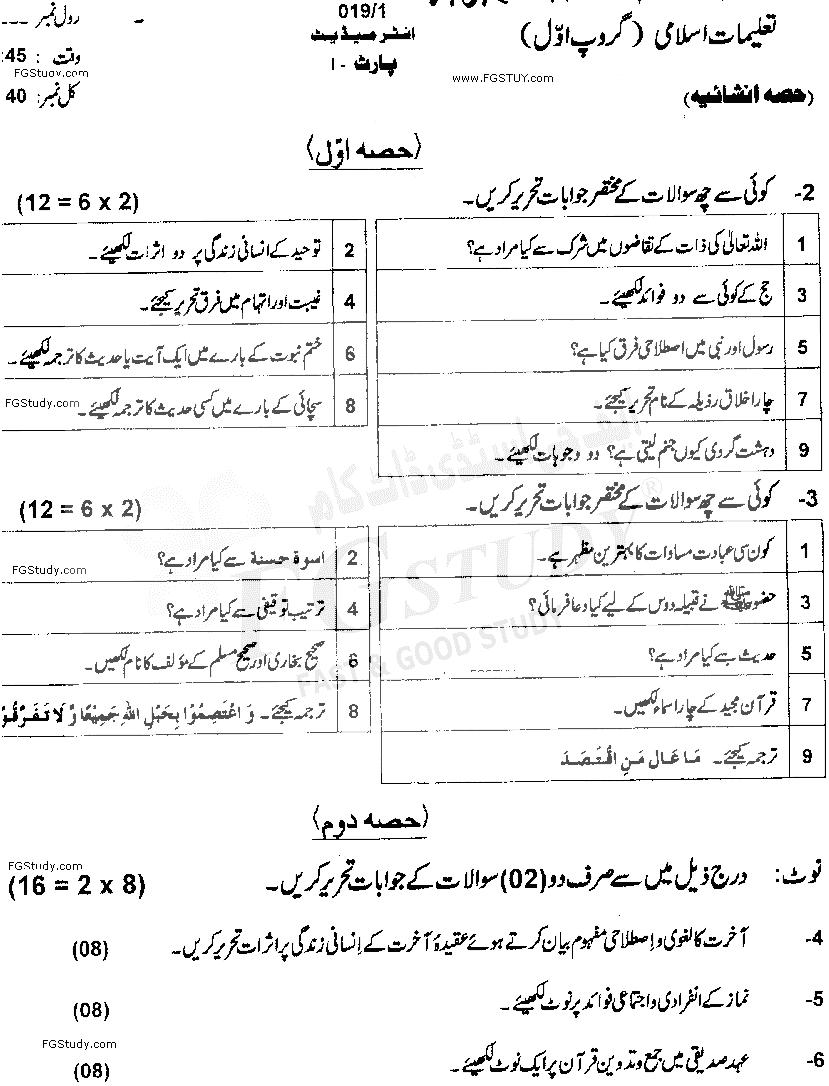 019/1
رول نمبر ---
تعلیمات اسلامی (گروپ اوّل)
انٹر میڈیٹ
وقت : 45:
پارٹ - I
FGStudy.com
www.FGSTUY.com
(حصہ انشائیہ)
کل نمبر: 40
(حصہ اوّل)
2- کوئی سے چھ سوالات کے مختصر جوابات تحریر کریں۔ (12 = 6 x 2)
1 اللہ تعالیٰ کی ذات کے تقاضوں میں شرک سے کیا مراد ہے؟
2 توحید کے انسانی زندگی پر دو اثرات لکھیئے۔
3 حج کے کوئی سے دو فوائد لکھیئے۔
4 غیبت اور اتہام میں فرق تحریر کیجئے۔
5 رسول اور نبی میں اصطلاحی فرق کیا ہے؟
6 ختم نبوت کے بارے میں ایک آیت یا حدیث کا ترجمہ لکھیئے۔
7 چار اخلاق رذیلہ کے نام تحریر کیجئے۔
8 سچائی کے بارے میں کسی حدیث کا ترجمہ لکھیئے۔
FGStudy.com
9 دہشت گردی کیوں جنم لیتی ہے؟ دو وجوہات لکھیئے۔
ایف جی اسٹڈی ڈاٹ کام
3- کوئی سے چھ سوالات کے مختصر جوابات تحریر کریں۔ (12 = 6 x 2)
1 کون سی عبادت مساوات کا بہترین مظہر ہے۔
2 اسوۃ حسنة سے کیا مراد ہے؟
FGStudy.com
3 حضور ﷺ نے قبیلہ دوس کے لیے کیا دعا فرمائی؟
4 ترتیب توقیفی سے کیا مراد ہے؟
FGSTUDY®
FAST & GOOD STUDY
5 حدیث سے کیا مراد ہے؟
6 صحیح بخاری اور صحیح مسلم کے مؤلف کا نام لکھیں۔
7 قرآن مجید کے چار اسماء لکھیں۔
8 ترجمہ کیجئے۔ وَ اعْتَصِمُوْا بِحَبْلِ اللّٰهِ جَمِيْعًا وَّ لَا تَفَرَّقُوْ
9 ترجمہ کیجئے۔ مَا عَالَ مَنِ اقْتَصَدَ
(حصہ دوم)
نوٹ: درج ذیل میں سے صرف دو (02) سوالات کے جوابات تحریر کریں۔ (16 = 2 x 8)
FGStudy.com
4- آخرت کا لغوی و اصطلاحی مفہوم بیان کرتے ہوئے عقیدۂ آخرت کے انسانی زندگی پر اثرات تحریر کریں۔ (08)
5- نماز کے انفرادی و اجتماعی فوائد پر نوٹ لکھیئے۔ (08)
FGStudy.com
6- عہد صدیقی میں جمع و تدوین قرآن پر ایک نوٹ لکھیئے۔ (08)